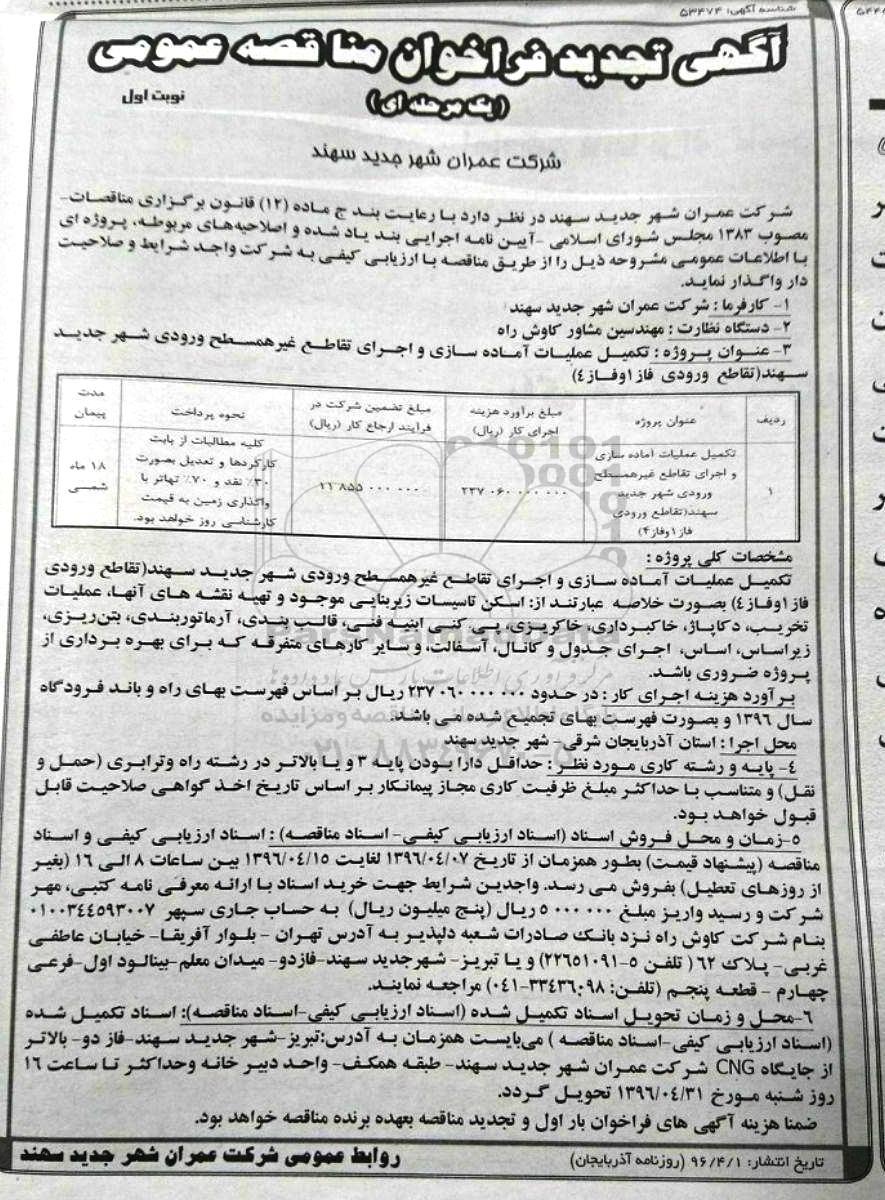 شناسه آگهی: ۵۳۴۷۴
آگهی تجدید فراخوان مناقصه عمومی
(یک مرحله ای)
نوبت اول
شرکت عمران شهر جدید سهند
شرکت عمران شهر جدید سهند در نظر دارد با رعایت بند ج ماده (۱۲) قانون برگزاری مناقصات-
مصوب ۱۳۸۳ مجلس شورای اسلامی -آیین نامه اجرایی بند یاد شده و اصلاحیه‌های مربوطه، پروژه ای
با اطلاعات عمومی مشروحه ذیل را از طریق مناقصه با ارزیابی کیفی به شرکت واجد شرایط و صلاحیت
دار واگذار نماید.
۱- کارفرما : شرکت عمران شهر جدید سهند
۲- دستگاه نظارت : مهندسین مشاور کاوش راه
۳- عنوان پروژه : تکمیل عملیات آماده سازی و اجرای تقاطع غیرهمسطح ورودی شهر جدید
سهند(تقاطع ورودی فاز۱وفاز۴)
ردیف
عنوان پروژه
مبلغ برآورد هزینه
اجرای کار (ریال)
مبلغ تضمین شرکت در
فرآیند ارجاع کار (ریال)
نحوه پرداخت
مدت
پیمان
۱
تکمیل عملیات آماده سازی
و اجرای تقاطع غیرهمسطح
ورودی شهر جدید
سهند(تقاطع ورودی
فاز۱وفاز۴)
۲۳۷ ۰۶۰ ۰۰۰ ۰۰۰
۱۱ ۸۵۵ ۰۰۰ ۰۰۰
کلیه مطالبات از بابت
کارکردها و تعدیل بصورت
۳۰٪ نقد و ۷۰٪ تهاتر با
واگذاری زمین به قیمت
کارشناسی روز خواهد بود.
۱۸ ماه
شمسی
مشخصات کلی پروژه :
تکمیل عملیات آماده سازی و اجرای تقاطع غیرهمسطح ورودی شهر جدید سهند(تقاطع ورودی
فاز۱وفاز۴) بصورت خلاصه عبارتند از: اسکن تاسیسات زیربنایی موجود و تهیه نقشه های آنها، عملیات
تخریب، دکاپاژ، خاکبرداری، خاکریزی، پی کنی ابنیه فنی، قالب بندی، آرماتوربندی، بتن‌ریزی،
زیراساس، اساس، اجرای جدول و کانال، آسفالت، و سایر کارهای متفرقه که برای بهره برداری از
پروژه ضروری باشد.
برآورد هزینه اجرای کار : در حدود ۲۳۷ ۰۶۰ ۰۰۰ ۰۰۰ ریال بر اساس فهرست بهای راه و باند فرودگاه
سال ۱۳۹۶ و بصورت فهرست بهای تجمیع شده می باشد.
محل اجرا : استان آذربایجان شرقی- شهر جدید سهند
۴- پایه و رشته کاری مورد نظر : حداقل دارا بودن پایه ۳ و یا بالاتر در رشته راه وترابری (حمل و
نقل) و متناسب با حداکثر مبلغ ظرفیت کاری مجاز پیمانکار بر اساس تاریخ اخذ گواهی صلاحیت قابل
قبول خواهد بود.
۵-زمان و محل فروش اسناد (اسناد ارزیابی کیفی- اسناد مناقصه) : اسناد ارزیابی کیفی و اسناد
مناقصه (پیشنهاد قیمت) بطور همزمان از تاریخ ۱۳۹۶/۰۴/۰۷ لغایت ۱۳۹۶/۰۴/۱۵ بین ساعات ۸ الی ۱۶ (بغیر
از روزهای تعطیل) بفروش می رسد. واجدین شرایط جهت خرید اسناد با ارائه معرفی نامه کتبی، مهر
شرکت و رسید واریز مبلغ ۵ ۰۰۰ ۰۰۰ ریال (پنج میلیون ریال) به حساب جاری سپهر ۰۱۰۰۳۴۴۵۹۳۰۰۷
بنام شرکت کاوش راه نزد بانک صادرات شعبه دلپذیر به آدرس تهران - بلوار آفریقا- خیابان عاطفی
غربی- پلاک ۶۲ ( تلفن ۵-۲۲۶۵۱۰۹۱) و یا تبریز- شهرجدید سهند-فازدو- میدان معلم-بینالود اول-فرعی
چهارم - قطعه پنجم (تلفن: ۳۳۴۳۶۰۹۸-۰۴۱) مراجعه نمایند.
۶-محل و زمان تحویل اسناد تکمیل شده (اسناد ارزیابی کیفی-اسناد مناقصه): اسناد تکمیل شده
(اسناد ارزیابی کیفی-اسناد مناقصه ) می‌بایست همزمان به آدرس:تبریز-شهر جدید سهند-فاز دو- بالاتر
از جایگاه CNG شرکت عمران شهر جدید سهند- طبقه همکف- واحد دبیر خانه وحداکثر تا ساعت ۱۶
روز شنبه مورخ ۱۳۹۶/۰۴/۳۱ تحویل گردد.
ضمنا هزینه آگهی های فراخوان بار اول و تجدید مناقصه بعهده برنده مناقصه خواهد بود.
تاریخ انتشار: ۹۶/۴/۱ (روزنامه آذربایجان)
روابط عمومی شرکت عمران شهر جدید سهند
ParsNamadData